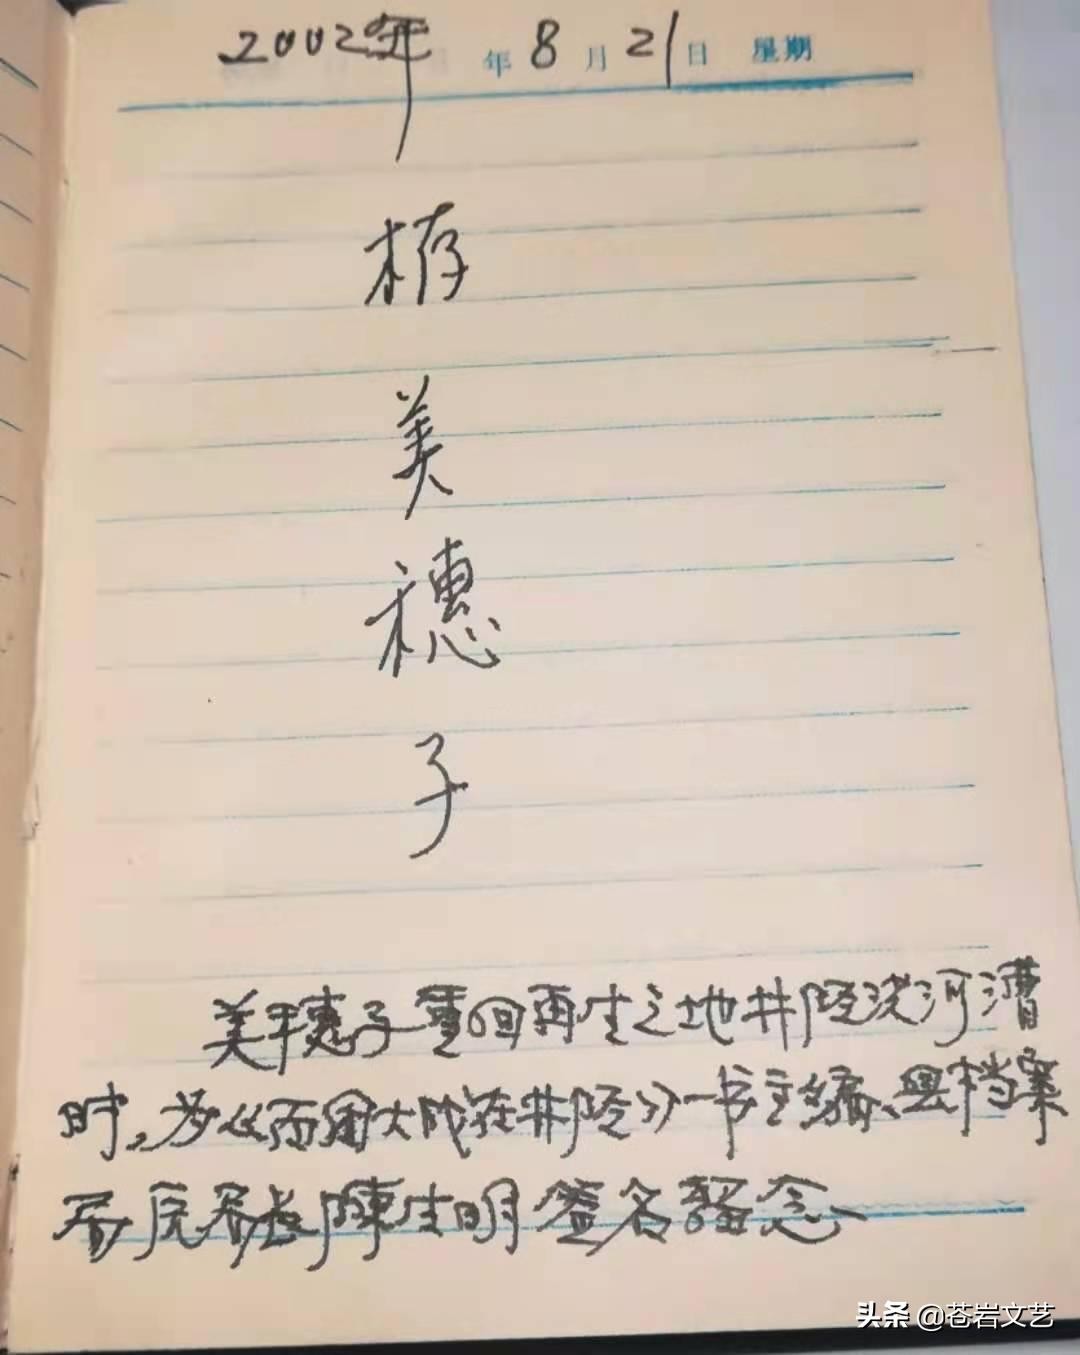 2002年 年 8 月 21 日 星期
栫美穗子
美穗子重回再生之地井陉洪河漕
时，为《百团大战在井陉》一书主编、县档案
局原局长陳生明签名留念
头条 @苍岩文艺